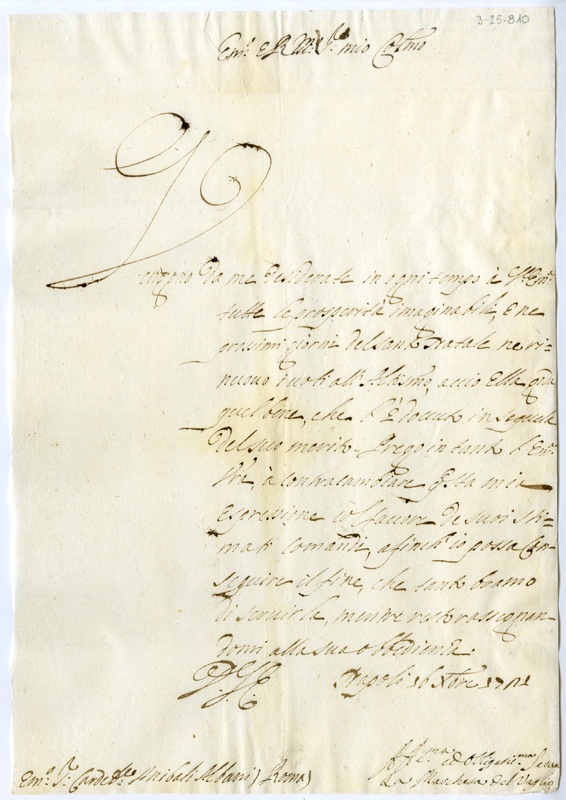 3-25-810
Em.o e R.mo S.re mio Col.mo
Vengono da me desiderate in ogni tempo à V. Em.
tutte le prosperità imaginabili, e ne
prossimi giorni del Santo Natale ne ri=
nuovo i voti all'Altissimo, acciò Ella goda
quel bene, che l'è dovuto in seguela
del suo merito. Prego in tanto l'Em.
Vra, à contracambiare questa mia
espressione col favore de suoi sti=
mati comandi, afinch'io possa con=
seguire il fine, che tanto bramo
di servirla, mentre resto rassegnan=
domi alla sua obbedienza.
Napoli 16 Xbre 1721
ed Obligatis.ma Serva
La Marchesa del Vaglio
Em.o S.r Card.le Anibali Albani (Roma)